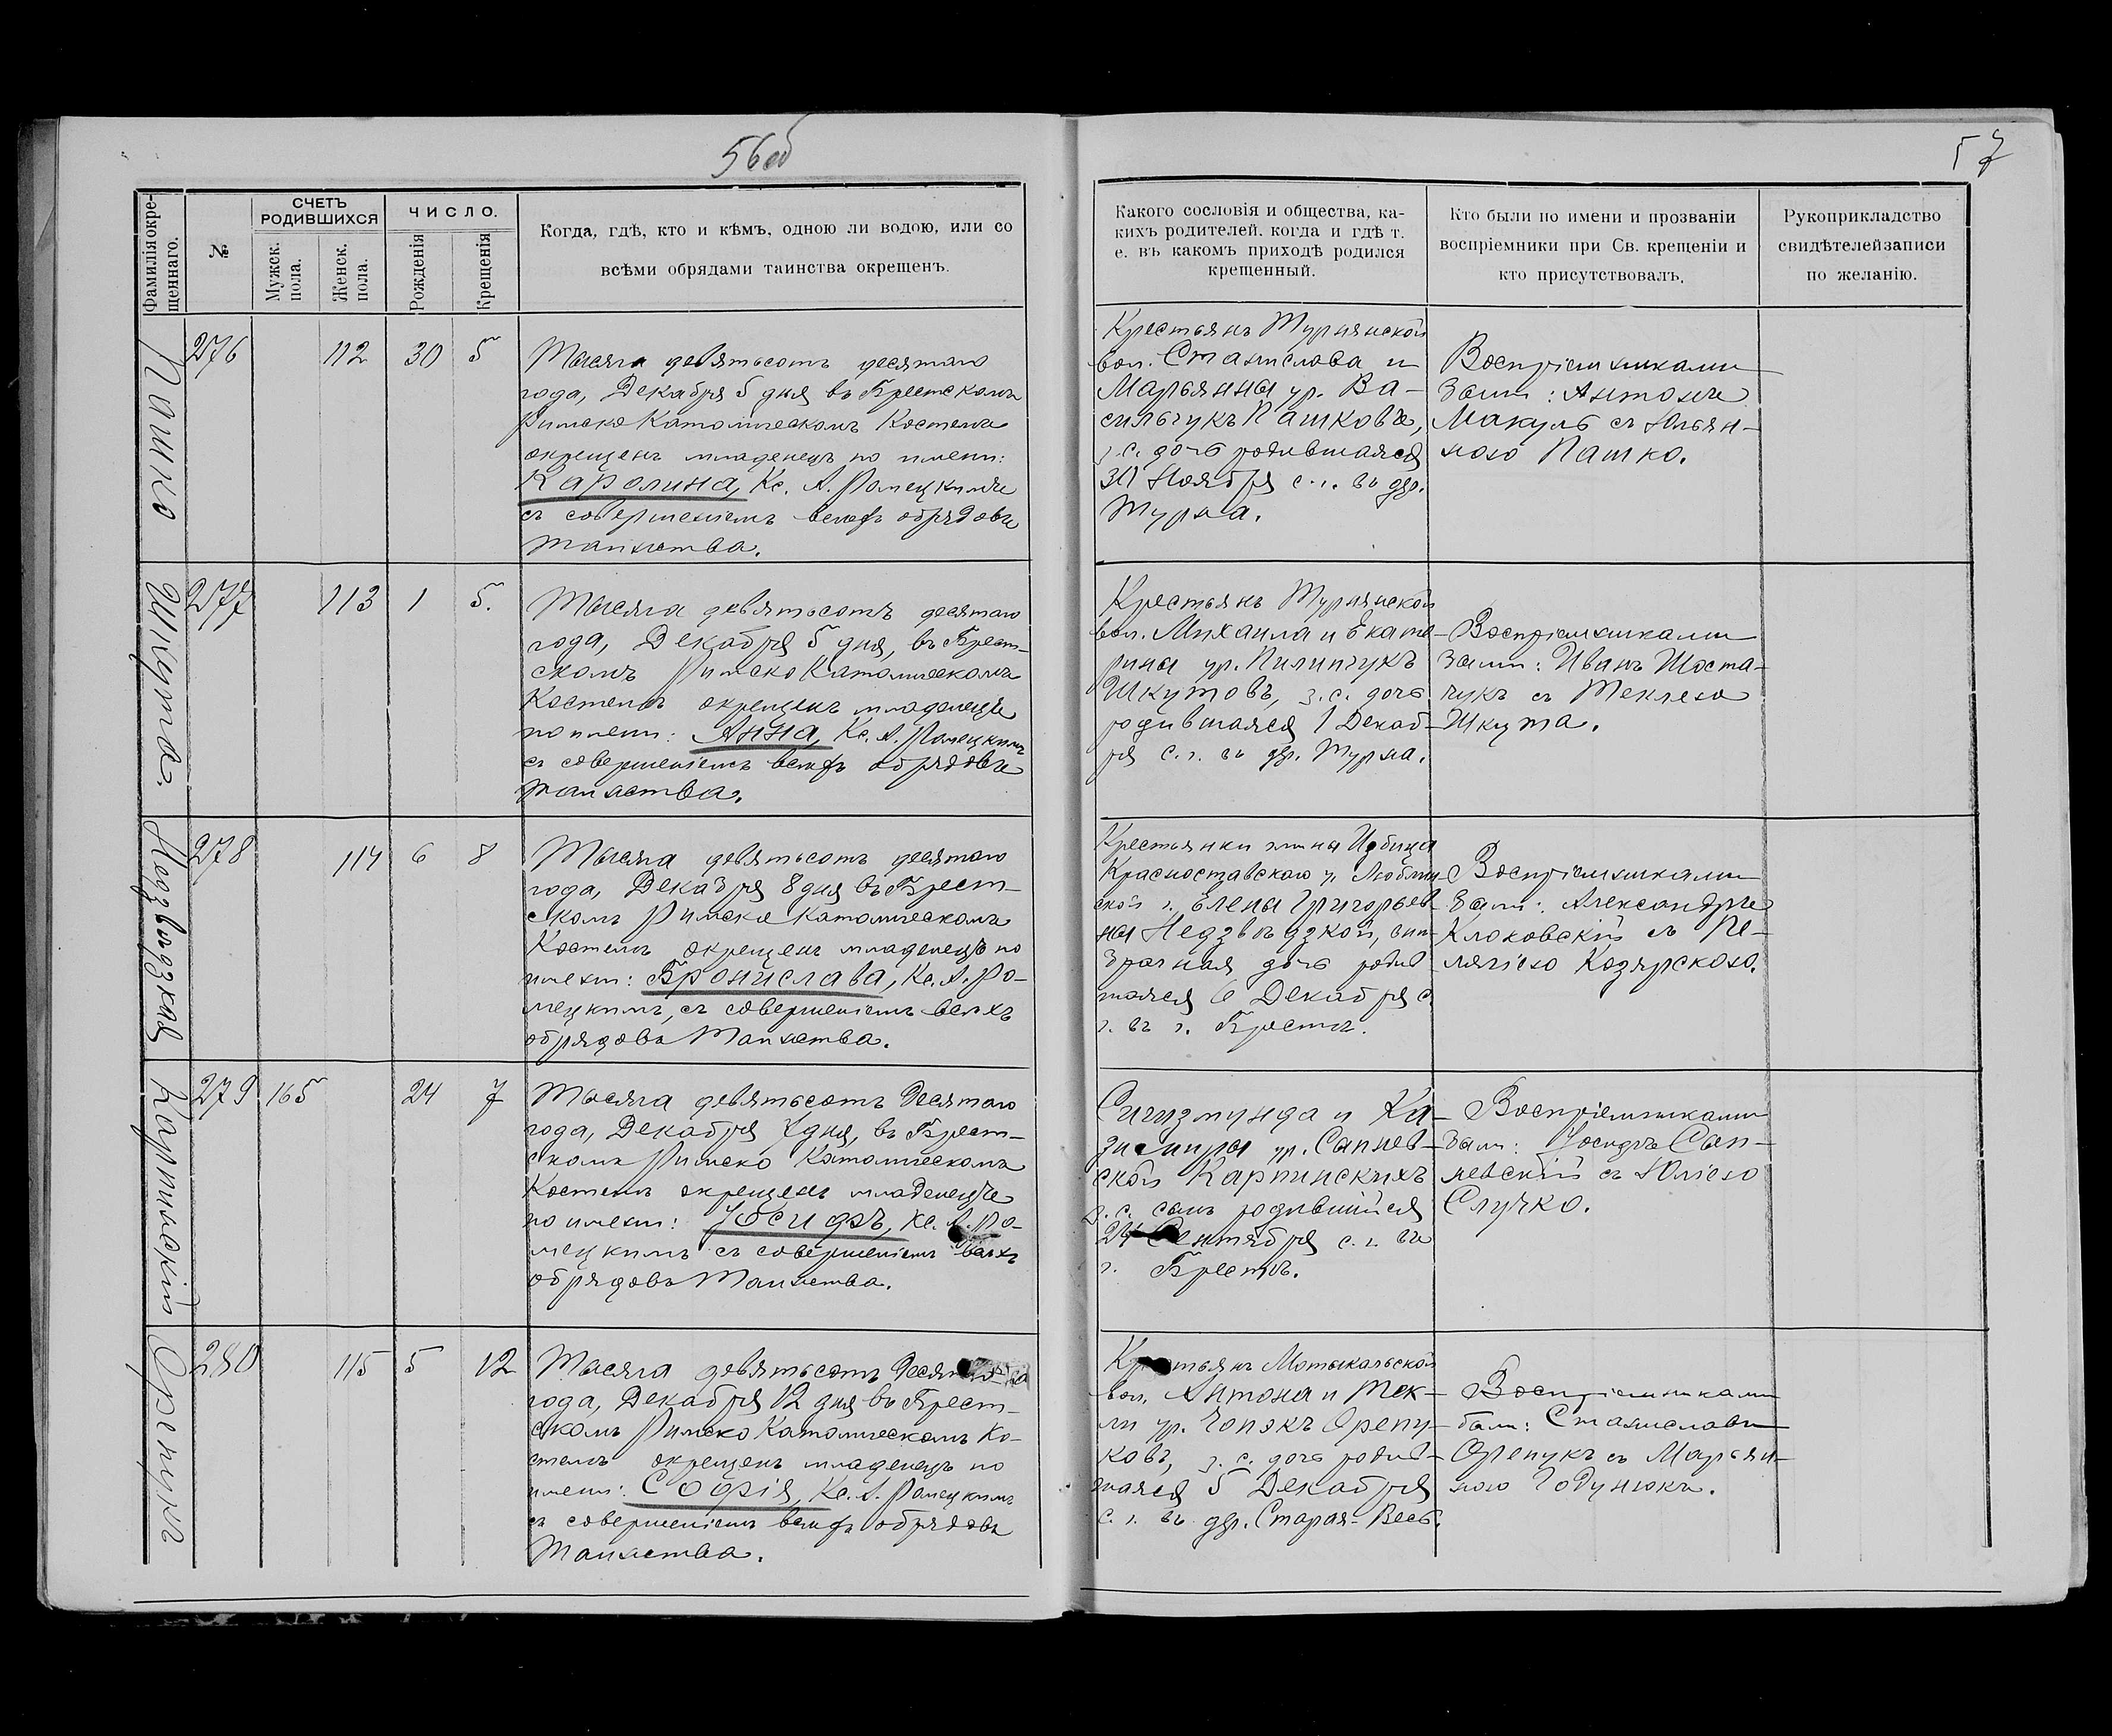 56об
57
Фамилія окрещеннаго.
№
СЧЕТЪ РОДИВШИХСЯ
Мужск. пола.
Женск. пола.
ЧИСЛО.
Рожденія
Крещенія
Когда, гдѣ, кто и кѣмъ, одною ли водою, или со
всѣми обрядами таинства окрещенъ.
Какого сословія и общества, ка-
кихъ родителей, когда и гдѣ т.
е. въ какомъ приходѣ родился
крещенный.
Кто были по имени и прозванію
воспріемники при Св. крещеніи и
кто присутствовалъ.
Рукоприкладство
свидѣтелей записи
по желанію.
Пашко
276
112
30
5
Тысяча девятьсотъ десятаго
года, Декабря 5 дня въ Брестскомъ
Римско Католическомъ Костелѣ
окрещенъ младенецъ по имени:
Каролина, Кс. А. Ромецкимъ
съ совершеніемъ всѣхъ обрядовъ
таинства.
Крестьянъ Турнянской
вол. Станислава и
Марьянны ур. Ва-
сильчукъ Пашковъ,
з.с. дочь родившаяся
30 Ноября с.г. въ дер.
Турна.
Воспріемниками
были: Антонъ
Макуль съ Ульян-
ною Пашко.
Шкута.
277
113
1
5.
Тысяча девятьсотъ десятаго
года, Декабря 5 дня, въ Брест-
скомъ Римско Католическомъ
Костелѣ окрещенъ младенецъ
по имени: Анна, Кс. А. Ромецкимъ
съ совершеніемъ всѣхъ обрядовъ
таинства.
Крестьянъ Турнянской
вол. Михаила и Екате-
рины ур. Пилипчукъ
Шкутовъ, з.с. дочь
родившаяся 1 Декаб-
ря с.г. въ дер. Турна.
Воспріемниками
были: Иванъ Шоста-
чукъ съ Теклею
Шкута.
Недзвѣдзкая
278
114
6
8
Тысяча девятьсотъ десятаго
года, Декабря 8 дня въ Брест-
скомъ Римско Католическомъ
Костелѣ окрещенъ младенецъ по
имени: Бронислава, Кс. А. Ро-
мецкимъ, съ совершеніемъ всѣхъ
обрядовъ Таинства.
Крестьянки гмины Избица
Красноставскаго у. Люблин-
ской г. Елены Григорьев-
ны Недзвѣдзкой, вне-
брачная дочь родив-
шаяся 6 Декабря с.
г. въ г. Брестѣ.
Воспріемниками
были: Александръ
Клоковскій съ Пе-
лягіею Козярскою.
Карпинскій
279
165
24
7
Тысяча девятьсотъ десятаго
года, Декабря 7 дня, въ Брест-
скомъ Римско Католическомъ
Костелѣ окрещенъ младенецъ
по имени: Іосифъ, Кс. А. Ро-
мецкимъ съ совершеніемъ всѣхъ
обрядовъ Таинства.
Сигизмунда и Ка-
зимиры ур. Сапнев-
ской Карпинскихъ
з.с. сынъ родившійся
24 Сентября с.г. въ
г. Брестѣ.
Воспріемниками
были: Іосифъ Сап-
невскій съ Юліею
Случко.
Орепукъ
280
115
5
12
Тысяча девятьсотъ десятаго
года, Декабря 12 дня въ Брест-
скомъ Римско Католическомъ Ко-
стелѣ окрещенъ младенецъ по
имени: Софія, Кс. А. Ромецкимъ
съ совершеніемъ всѣхъ обрядовъ
Таинства.
Крестьянъ Мотыкальской
вол. Антона и Тек-
ли ур. Чопэкъ Орепу-
ковъ, з.с. дочь родив-
шаяся 5 Декабря
с.г. въ дер. Старая-Весь.
Воспріемниками
были: Станиславъ
Орепукъ съ Марьян-
ною Годунюкъ.